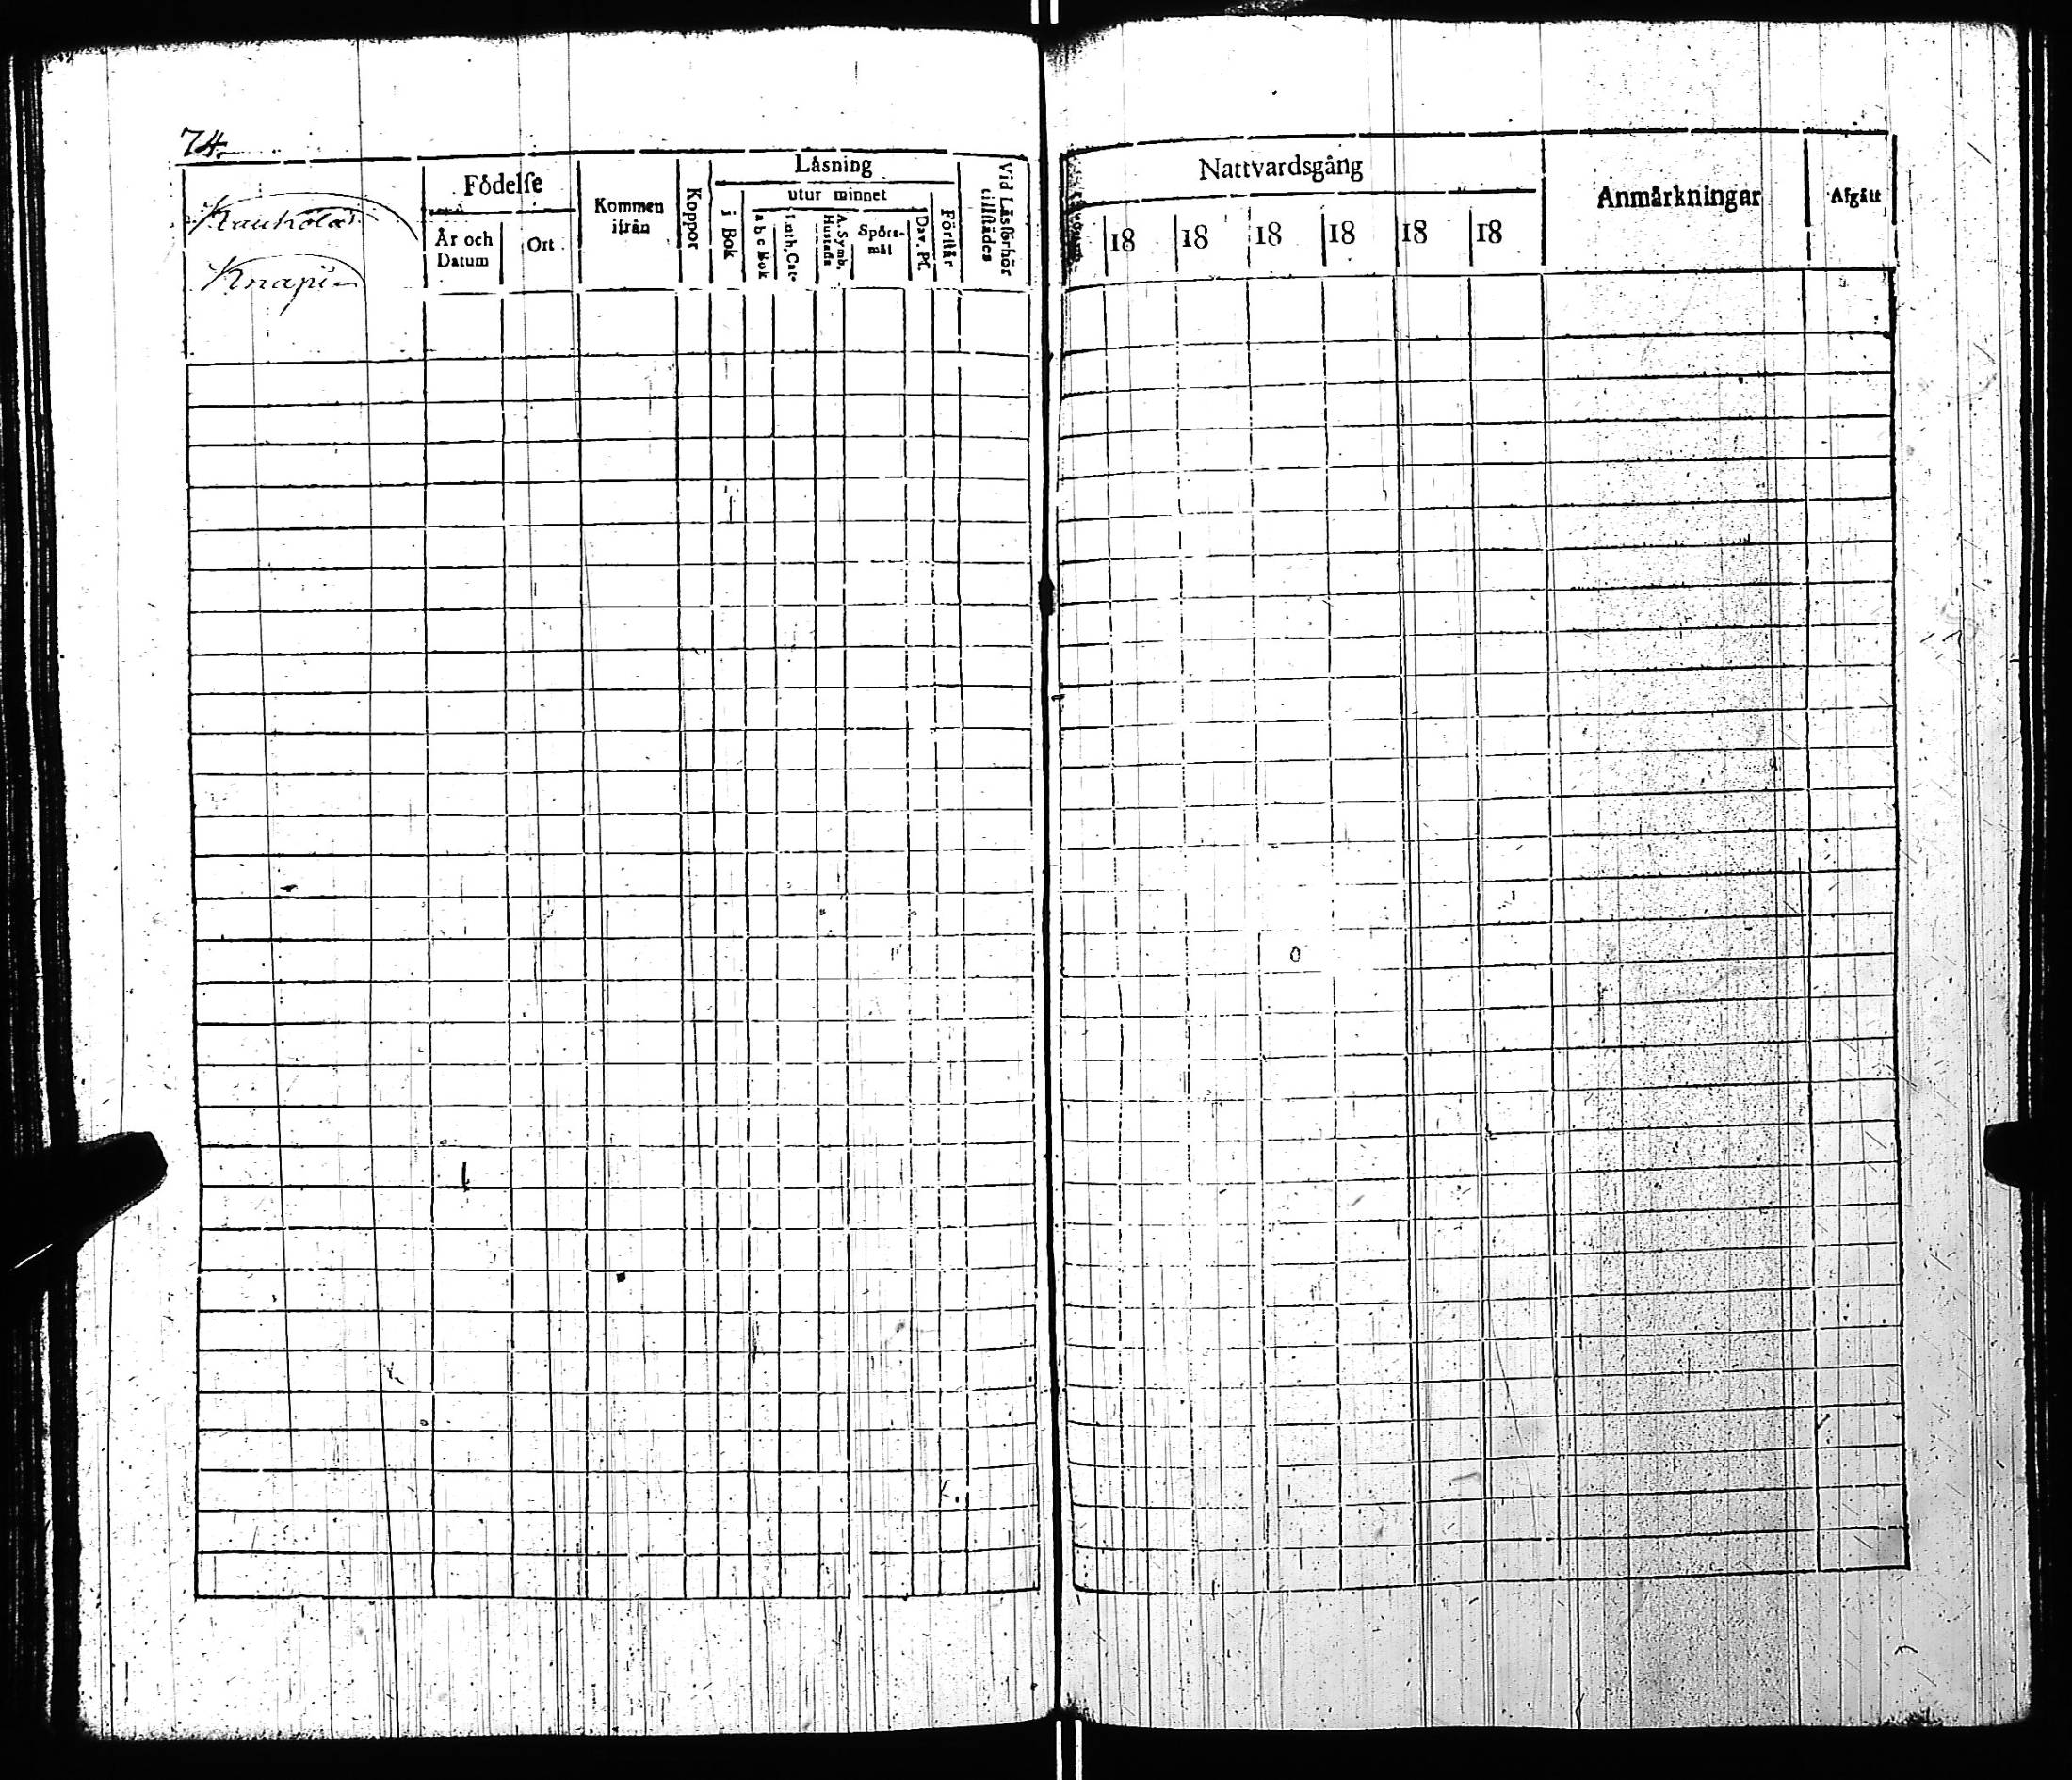 74.
Kauhola
Knapi
Födelſe
År och Datum
Ort
Kommen ifrån
Koppor
Läsning
utur minnet
i Bok
a b c Bok
Luth. Cat.
A. Symb. Hustafla
Spörs-mål
Dav. Pſ.
Förſtår
Vid Läsförhör tillſtädes
Nattvardsgång
18 18 18 18 18 18
Anmärkningar
Afgått